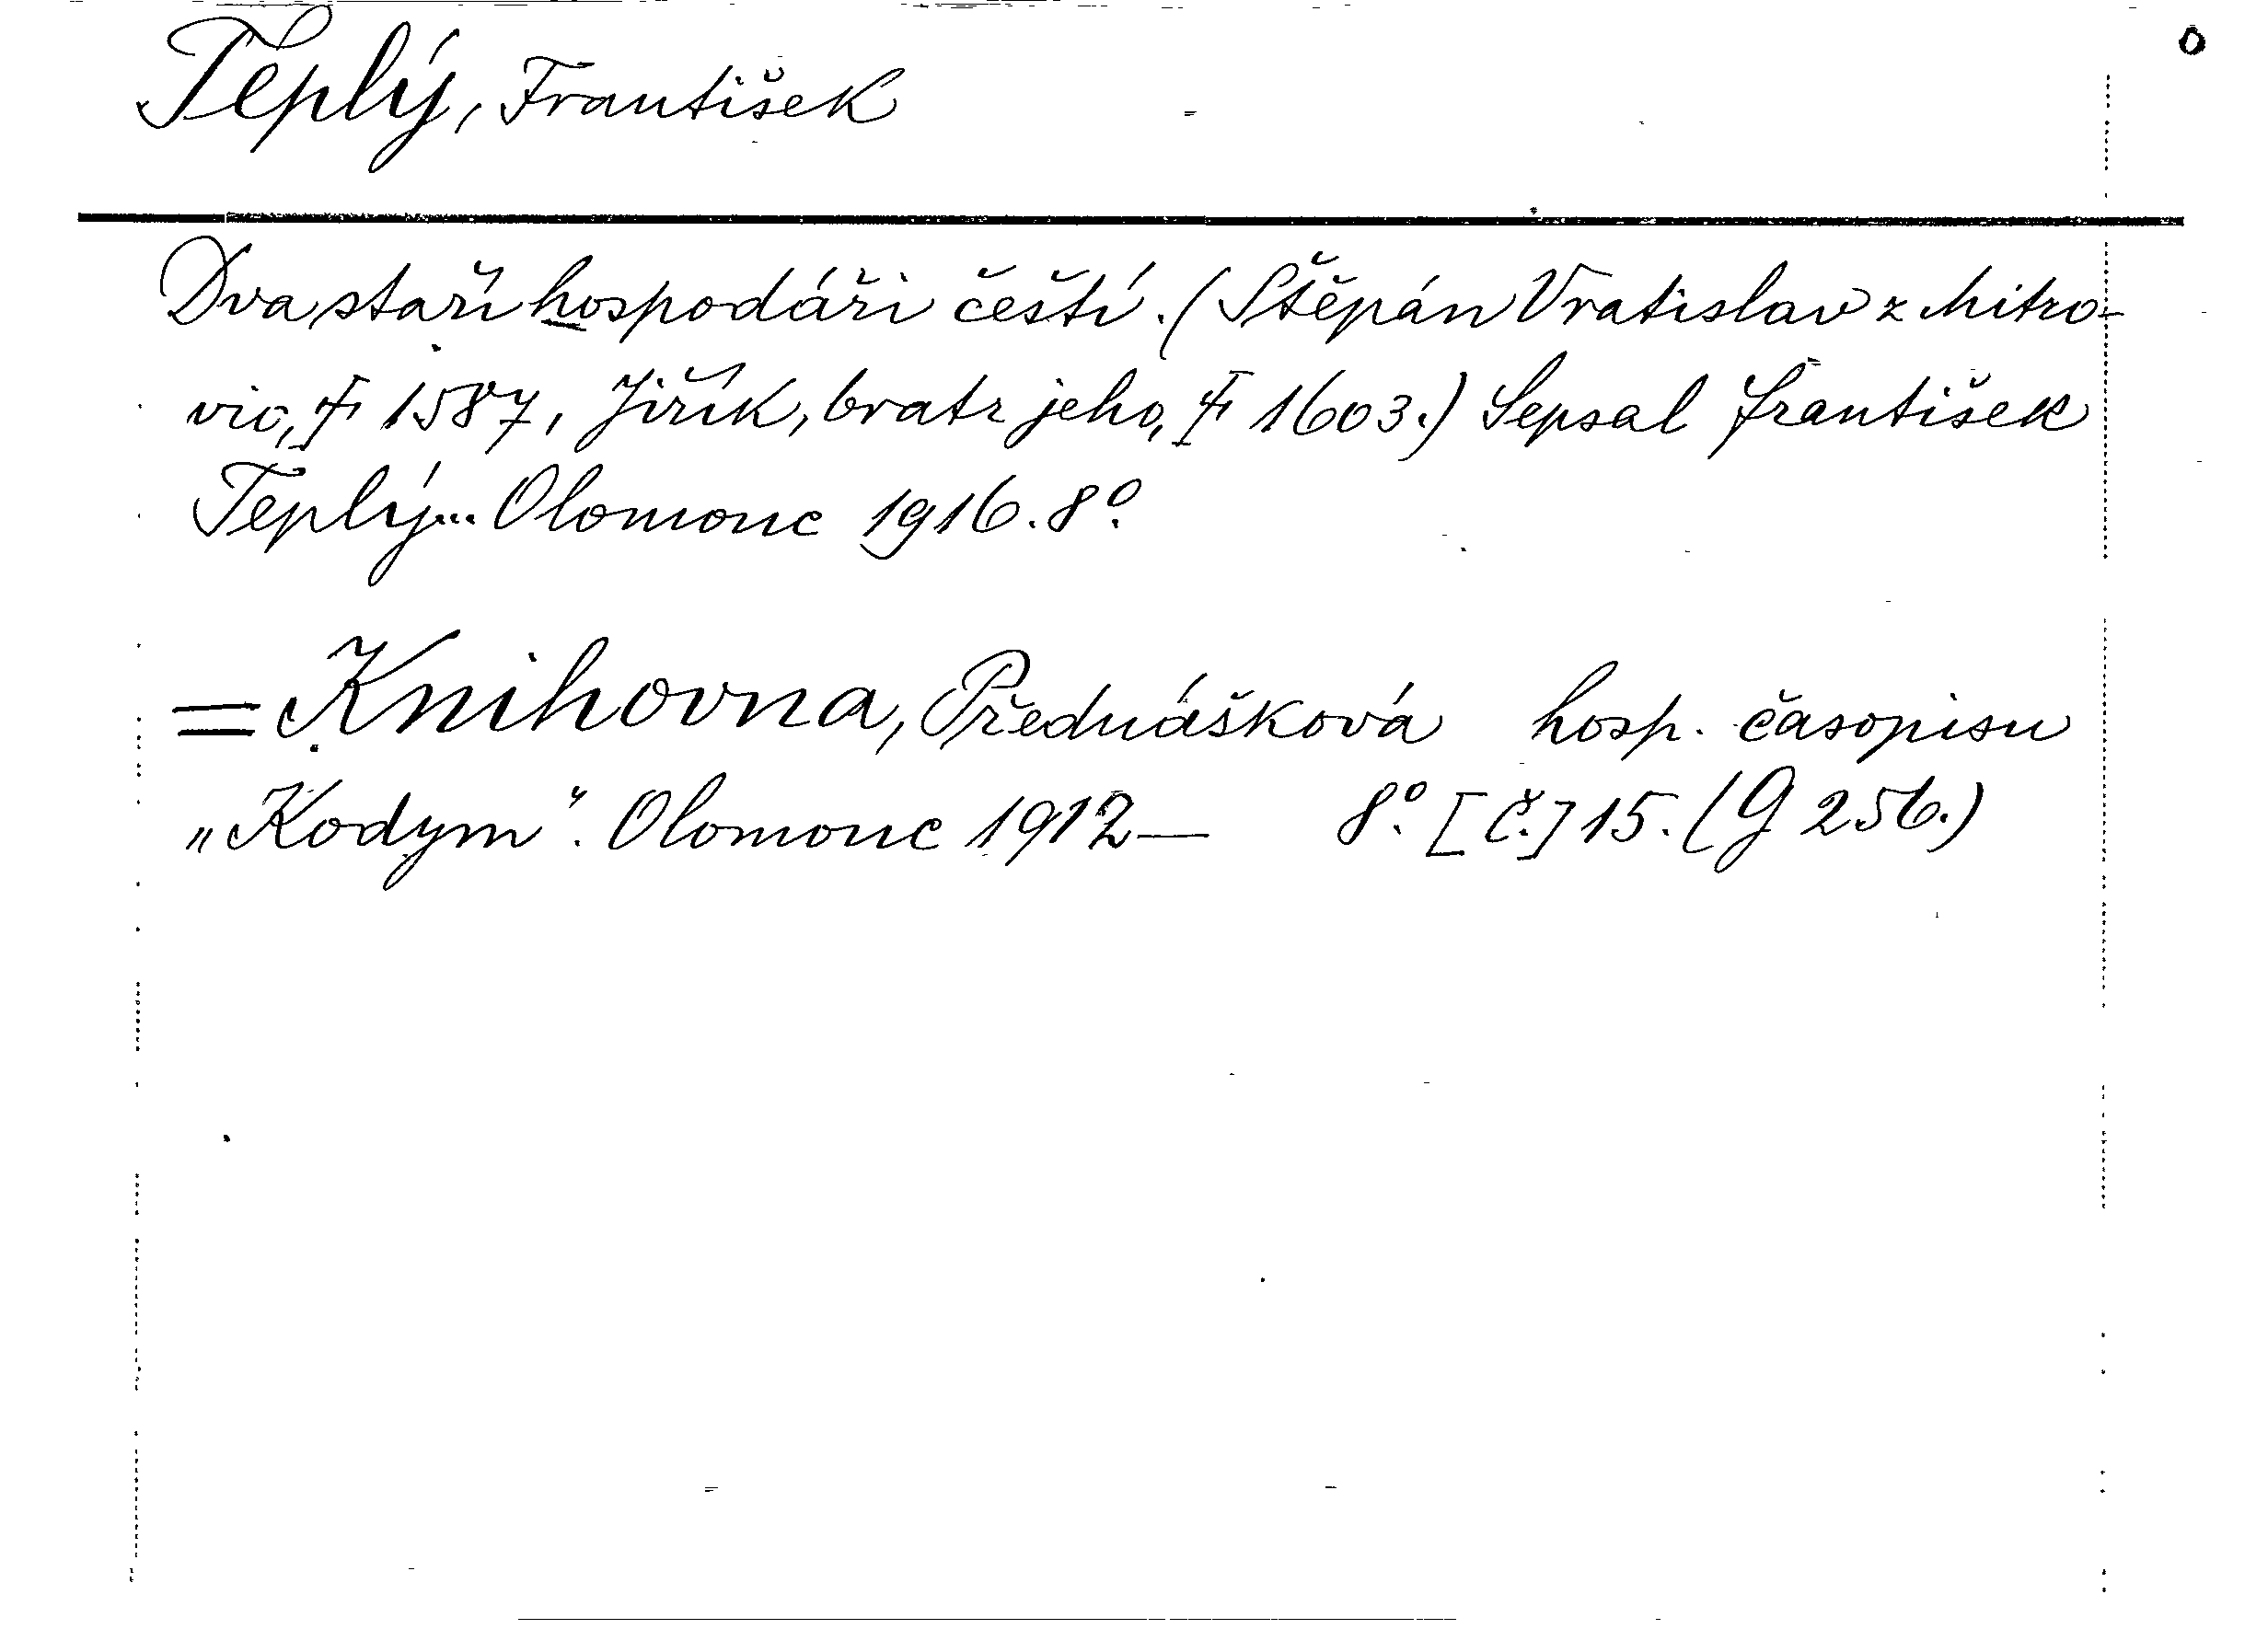 Teplý, František
Dva staří hospodáři čeští. (Štěpán Vratislav z Mitro-
vic, † 1587, Jiřík, bratr jeho, † 1603.) Sepsal František
Teplý... Olomouc 1916. 8º.
= Knihovna, Přednášková hosp. časopisu
„Kodym". Olomouc 1912— 8º. [Č.] 15. (G 256.)